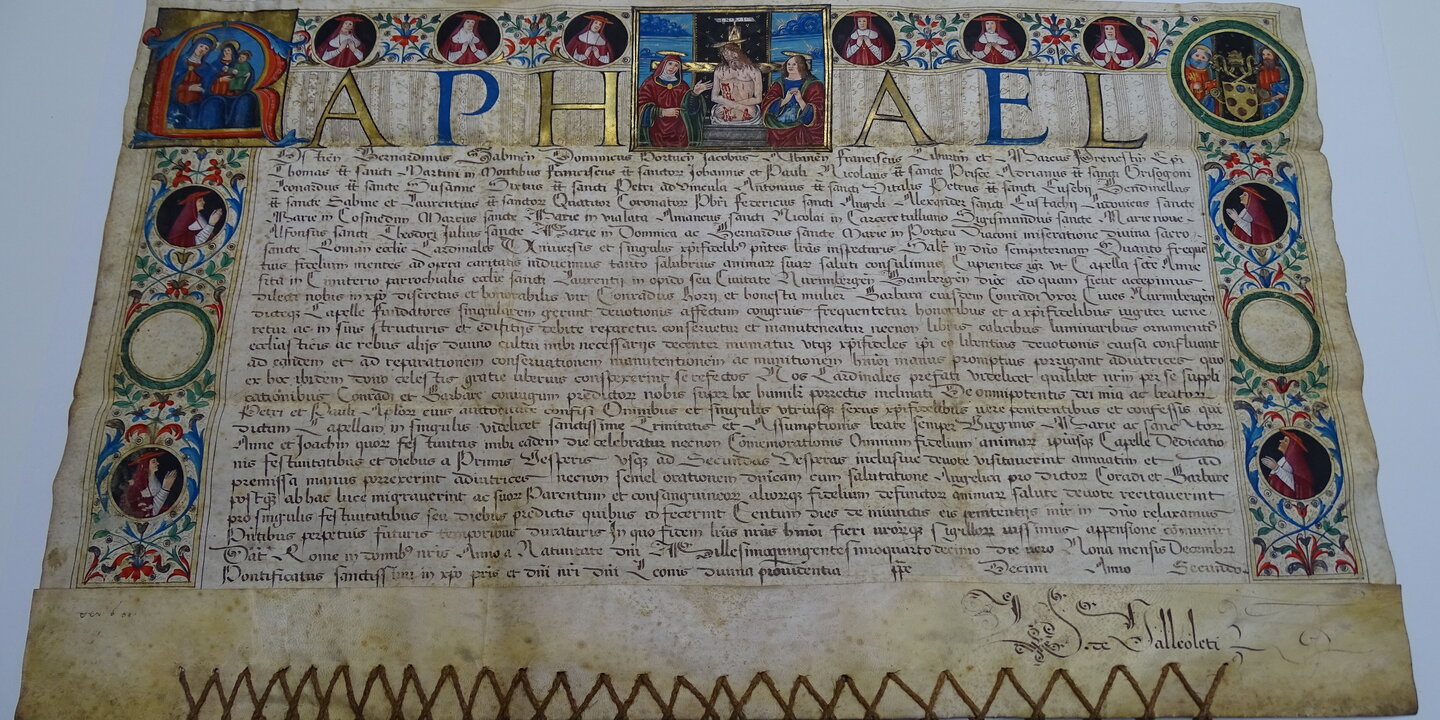 RAPHAEL
Ostien Bernardinus Sabineñ Dominicus Portueñ Jacobus Albaneñ Franciscus Tiburtin et Marcus Prenestiñ Epi
Thomas tt sancti Martini in Montibus Franciscus tt sanctorz Johannis et Pauli Nicolaus tt sancte Prisce Adrianus tt sancti Grisogoni
Leonardus tt sancte Susanne Sixtus tt sancti Petri ad vincula Antonius tt sancti Vitalis Petrus tt sancti Eusebij Bendinellus
tt sancte Sabine et Laurentius tt sanctorz Quatuor Coronatorz Pbri Federicus sancti Angeli Alexander sancti Eustachij Ludovicus sancte
Marie in Cosmedin Marcus sancte Marie in vialata Amaneus sancti Nicolai in Carcere tulliano Sigismundus sancte Marie noue
Alfonsus sancti Theodori Julius sancte Marie in Domnica ac Bernardus sancte Marie in Porticu Diaconi miseratione diuina sacro
sancte Roman ecclie Cardinales Vniuersis et singulis xpifidelibus pñtes lras inspecturis Salt in dño sempiternam Quanto freque
tius fidelium mentes ad opera caritatis inducimus tanto salubrius animarz suarz saluti consulimus Cupientes igr vt Capella scte Anne
sita in Cimiterio parrochialis ecclie sancti Laurentij in opido seu Ciuitate Nurimbergeñ Bambergeñ dioc ad quam sicut accepimus
dilecti nobis in xpo discretus et honorabilis vir Conradus Horñ et honesta mulier Barbara eiusdem Conradi vxor Ciues Nurmibergen
dicteqz Capelle fundatores singularem gerunt deuotionis affectum congruis frequentetur honoribus et a xpifidelibus iugiter vene
retur ac in suis structuris et edificijs debite reparetur conseruetur et manuteneatur necnon libris calicibus luminaribus ornamentis
ecclesiasticis ac rebus alijs diuino cultui inibi necessarijs decenter muniatur vtqz xpifideles ipi eo libentius deuotionis causa confluant
ad eandem et ad reparationem conseruationem manutentionem ac munitionem hmoi manus promptius porrigant adiutrices quo
ex hoc ibidem dono celestis gratie vberius conspexerint se refectos Nos Cardinales prefati videlicet quilibet nrm per se suppli
cationibus Conradi et Barbare coniugum predictorz nobis super hoc humilr porrectis inclinati De omnipotentis dei mia ac beatorz
Petri et Pauli Aplorz eius auctoritate confisi Omnibus et singulis vtriusqz sexus xpifidelibus vere penitentibus et confessis qui
dictam Capellam in singulis videlicet sanctissime Trinitatis et Assumptionis beate semper Virginis Marie ac sanctorz
Anne et Joachin quorz festiuitas inibi eadem die celebratur necnon Comemorationis Omnium fidelium animarz ipiusqz Capelle Dedicatio
nis festiuitatibus et diebus a Primis Vesperis vsqz ad Secundas Vesperas inclusiue deuote visitauerint annuatim et ad
premissa manus porrexerint adiutrices necnon semel orationem dñicam cum salutatione Angelica pro dictorz Coradi et Barbare
postqz ab hac luce migrauerint ac suorz Parentum et consanguineorz aliorqz fidelium defunctorz animarz salute deuote recitauerint
pro singulis festiuitatibus seu diebus predictis quibus id fecerint Centum dies de iniunctis eis penitentijs mir in dño relaxamus
Pñtibus perpetuis futuris temporibus duraturis In quorz fidem lras nras hmoi fieri nrorqz sigillorz iussimus appensione comuniri
Dat Rome in domibz nris Anno a Natiuitate dñi Millesimoquingentesimoquartodecimo die vero Nona mensis Decembrz
Pontificatus sanctissimi in xpo pris et dñi nri dñi Leonis diuina prouidentia ppe Decimi Anno Secundo
de Valleoleti